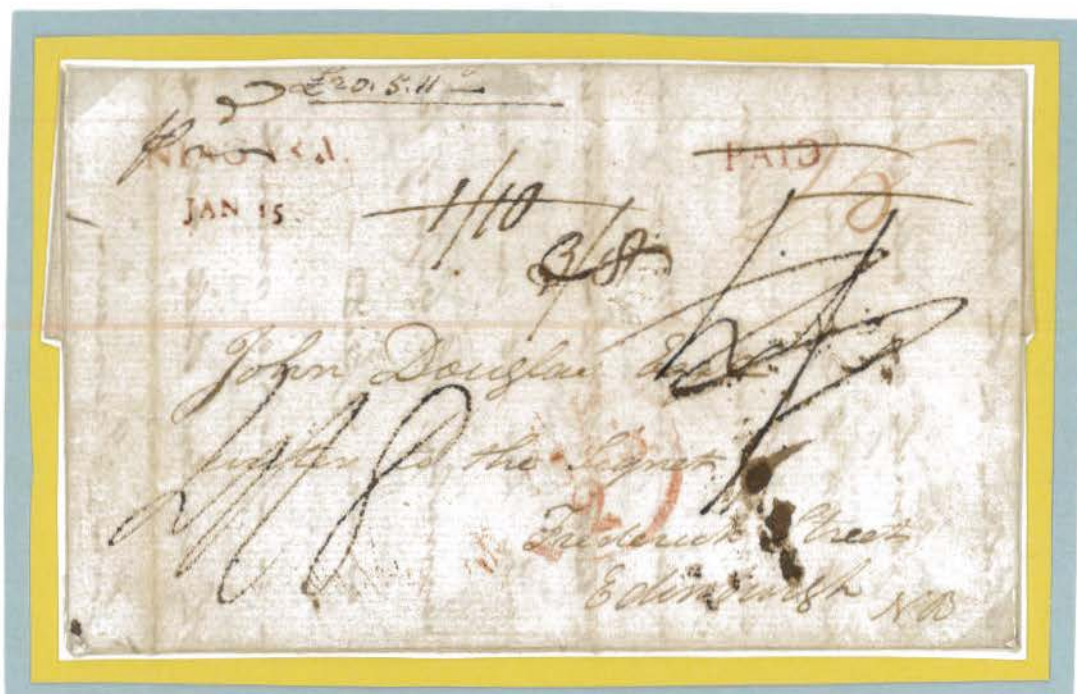 £20.5.11
PAID
JAN 15.
1/10
3/8
John Douglas
writer to the Signet
Frederick Street
Edinburgh NB